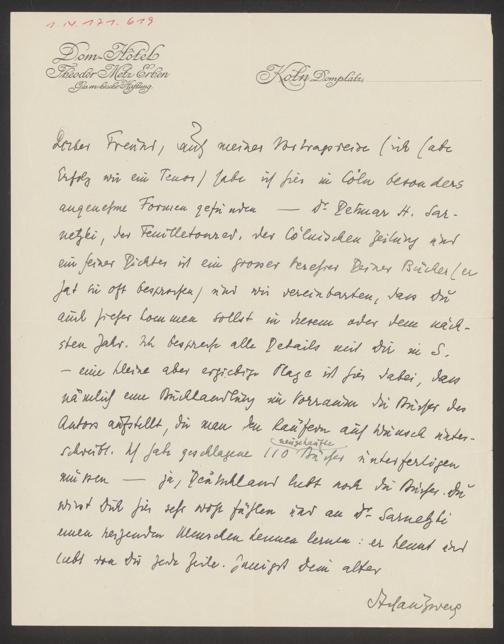 1.N.171.619
Dom-Hôtel
Theodor Metz Erben
Köln Domplatz,
Lieber Freund, auf meiner Vortragsreise (ich habe
Erfolg wie ein Tenor) habe ich hier in Cöln besonders
angenehme Formen gefunden — Dr. Detmar H. Sar-
netzki, der Feuilletonred. der Cölnischen Zeitung und
ein feiner Dichter ist ein grosser Verehrer Deiner Bücher (er
hat sie oft besprochen) und wir vereinbarten, dass Du
auch hieher kommen sollst in diesem oder dem näch-
sten Jahr. Ich bespreche alle Details mit Dir in S.
— eine kleine aber ergiebige Plage ist hier dabei, dass
nämlich eine Buchhandlung im Vorraum die Bücher des
Autors aufstellt, die man den Käufern auf Wunsch unter-
schreibt. Ich habe geschlagene 110 neugekaufte Bücher unterfertigen
müssen — ja, Deutschland liebt noch die Bücher. Du
wirst Dich hier sehr wohl fühlen und an Dr. Sarnetzki
einen reizenden Menschen kennen lernen: er kennt und
liebt von Dir jede Zeile. Innigst Dein alter
Stefan Zweig